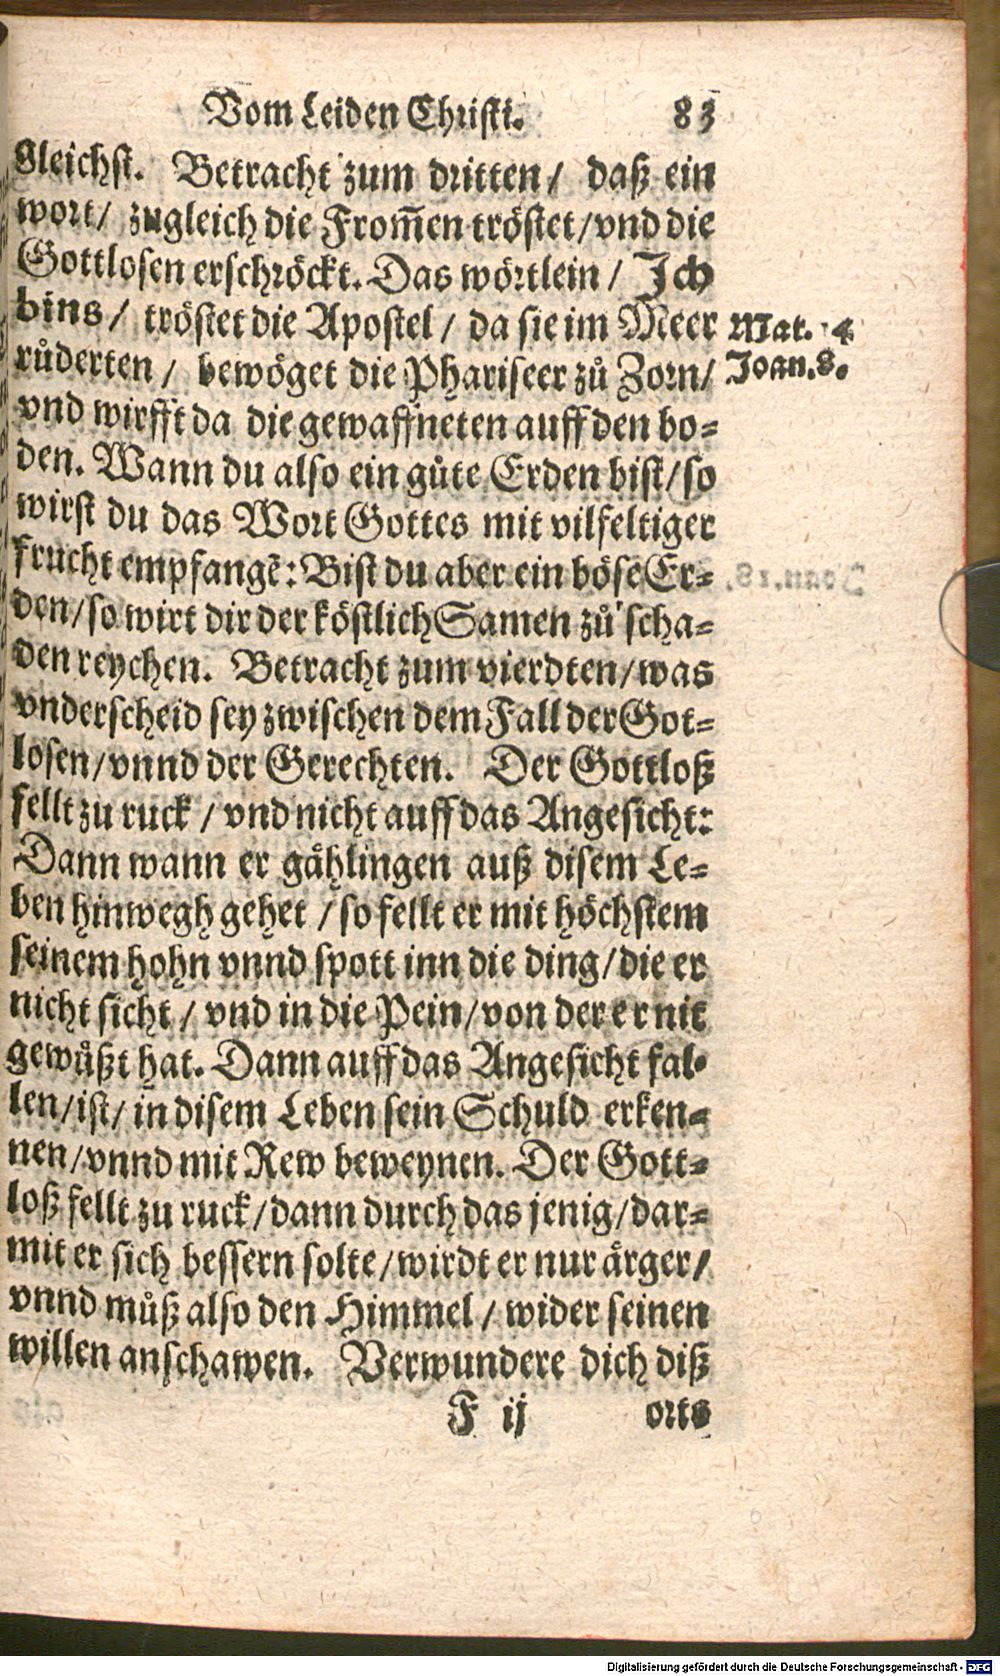 Vom Leiden Christi. 83
gleichst. Betracht zum dritten / daß ein
wort / zugleich die From̃en tröstet / vnd die
Gottlosen erschröckt. Das wörtlein / Ich
bins / tröstet die Apostel / da sie im Meer
růderten / bewöget die Phariseer zů Zorn /
vnd wirfft da die gewaffneten auff den bo⸗
den. Wann du also ein gůte Erden bist / so
wirst du das Wort Gottes mit vilfeltiger
frucht empfangẽ: Bist du aber ein böse Er⸗
den / so wirt dir der köstlich Samen zů scha⸗
den reychen. Betracht zum vierdten / was
vnderscheid sey zwischen dem Fall der Got⸗
losen / vnnd der Gerechten. Der Gottloß
fellt zu ruck / vnd nicht auff das Angesicht:
Dann wann er gåhlingen auß disem Le⸗
ben hinwegh gehet / so fellt er mit höchstem
seinem hohn vnnd spott inn die ding / die er
nicht sicht / vnd in die Pein / von der er nit
gewůßt hat. Dann auff das Angesicht fal⸗
len / ist / in disem Leben sein Schuld erken⸗
nen / vnnd mit Rew beweynen. Der Gott⸗
loß fellt zu ruck / dann durch das jenig / dar⸗
mit er sich bessern solte / wirdt er nur årger /
vnnd můß also den Himmel / wider seinen
willen anschawen. Verwundere dich diß
F ij orts
Mat. 14
Joan. 8.
Digitalisierung gefördert durch die Deutsche Forschungsgemeinschaft - DFG